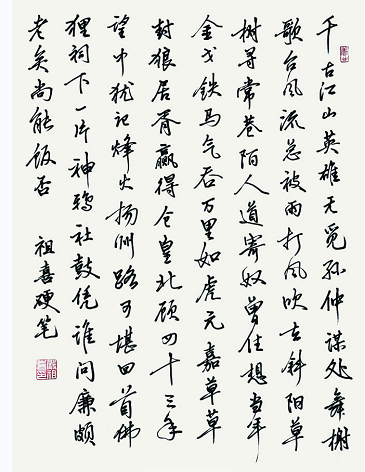 千古江山英雄无觅孙仲谋处舞榭
歌台风流总被雨打风吹去斜阳草
树寻常巷陌人道寄奴曾住想当年
金戈铁马气吞万里如虎元嘉草草
封狼居胥赢得仓皇北顾四十三年
望中犹记烽火扬州路可堪回首佛
狸祠下一片神鸦社鼓凭谁问廉颇
老矣尚能饭否
祖喜硬笔